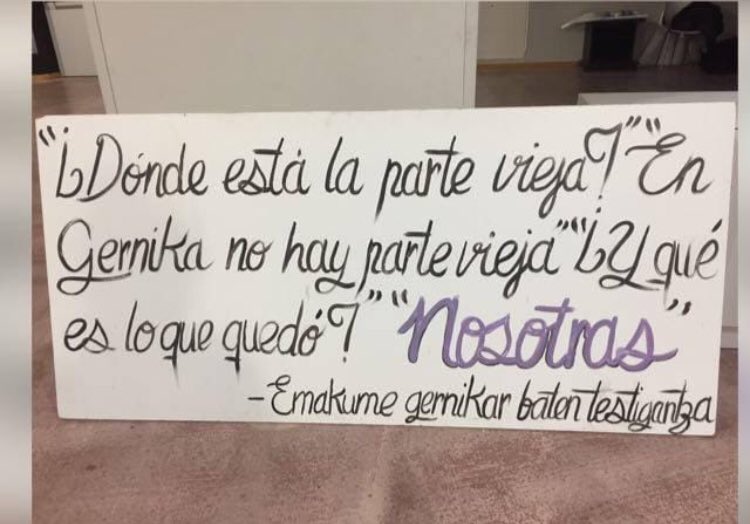 "¿Dónde está la parte vieja?" "En
Gernika no hay parte vieja" "¿Y qué
es lo que quedó?" "Nosotras"
- Emakume gernikar baten testigantza